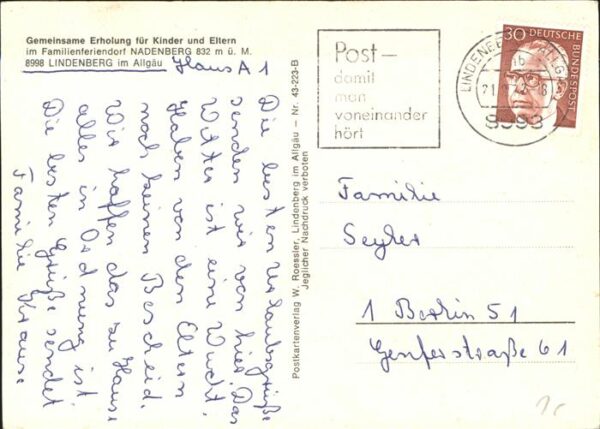 Gemeinsame Erholung für Kinder und Eltern
im Familienferiendorf NADENBERG 832 m ü. M.
8998 LINDENBERG im Allgäu
Haus A 1
Die besten Urlaubsgrüße
senden wir von hier. Das
Wetter ist eine Wucht.
Haben von den Eltern
noch keinen Bescheid.
Wir hoffen das zu Hause
alles in Ordnung ist.
Die besten Grüße sendet
Familie Krause
Postkartenverlag W. Roessler, Lindenberg im Allgäu – Nr. 43-223-B
Jeglicher Nachdruck verboten
Post –
damit
man
voneinander
hört
LINDENBERG
8998
30 DEUTSCHE
BUNDESPOST
Familie
Seyler
1 Berlin 51
Genferstraße 61